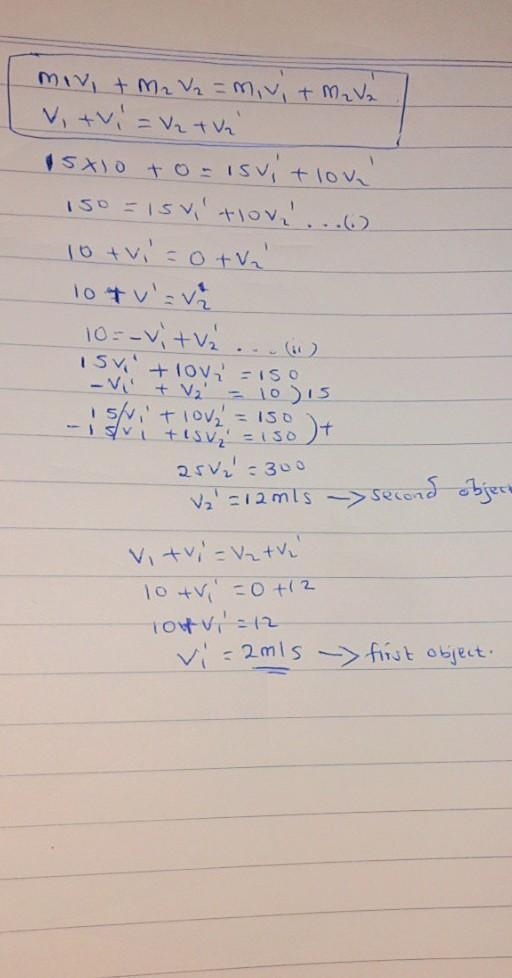 m₁v₁ + m₂v₂ = m₁v₁' + m₂v₂'
v₁ + v₁' = v₂ + v₂'
15×10 + 0 = 15v₁' + 10v₂'
150 = 15v₁' + 10v₂' ...(i)
10 + v₁' = 0 + v₂'
10 + v' = v₂'
10 = -v₁' + v₂' ...(ii)
15v₁' + 10v₂' = 150
-v₁' + v₂' = 10)15
15v₁' + 10v₂' = 150
-15v₁' + 15v₂' = 150)+
25v₂' = 300
v₂' = 12m/s → second object
v₁ + v₁' = v₂ + v₂'
10 + v₁' = 0 + 12
10 + v₁' = 12
v₁' = 2m/s → first object.